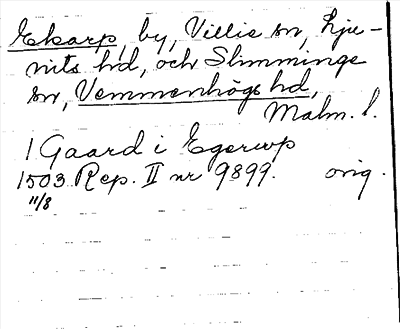 Ekarp, by, Villie sn, Lju-
nits hd, och Slimminge
sn, Vemmenhögs hd,
Malm. l.
1 Gaard i Egerup
1503 Rep. II nr 9899. orig.
11/8